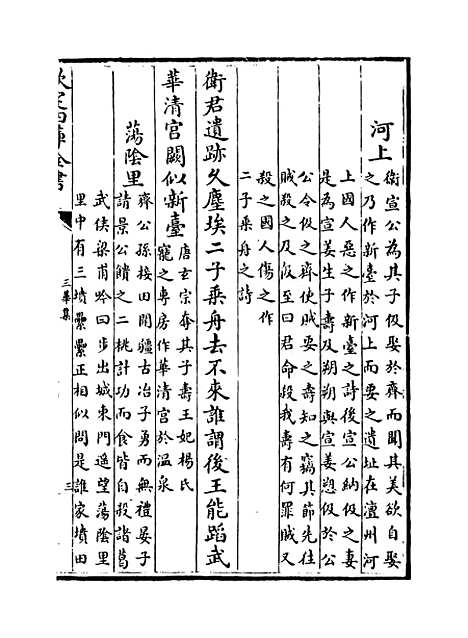 河上
衛宣公為其子伋娶於齊而聞其美欲自娶
之乃作新臺於河上而要之遺址在澶州河
上國人惡之作新臺之詩後宣公納伋之妻
是為宣姜生子壽及朔朔與宣姜愬伋於公
公令伋之齊使賊要之壽知之竊其節先往
賊殺之及伋至曰君命殺我壽有何罪賊又
殺之國人傷之作
二子乗舟之詩
衛君遺跡久塵埃二子乗舟去不來誰謂後王能蹈武
華清宫闕似新臺
唐玄宗奪其子壽王妃楊氏
寵之専房作華清宫於温泉
蕩陰里
齊公孫接田開疆古冶子勇而無禮晏子
請景公饋之二桃計功而食皆自殺諸葛
武侯梁甫吟曰歩出城東門遥望蕩陰里
里中有三墳纍纍正相似問是誰家墳田
欽定四庫全書
三華集
三